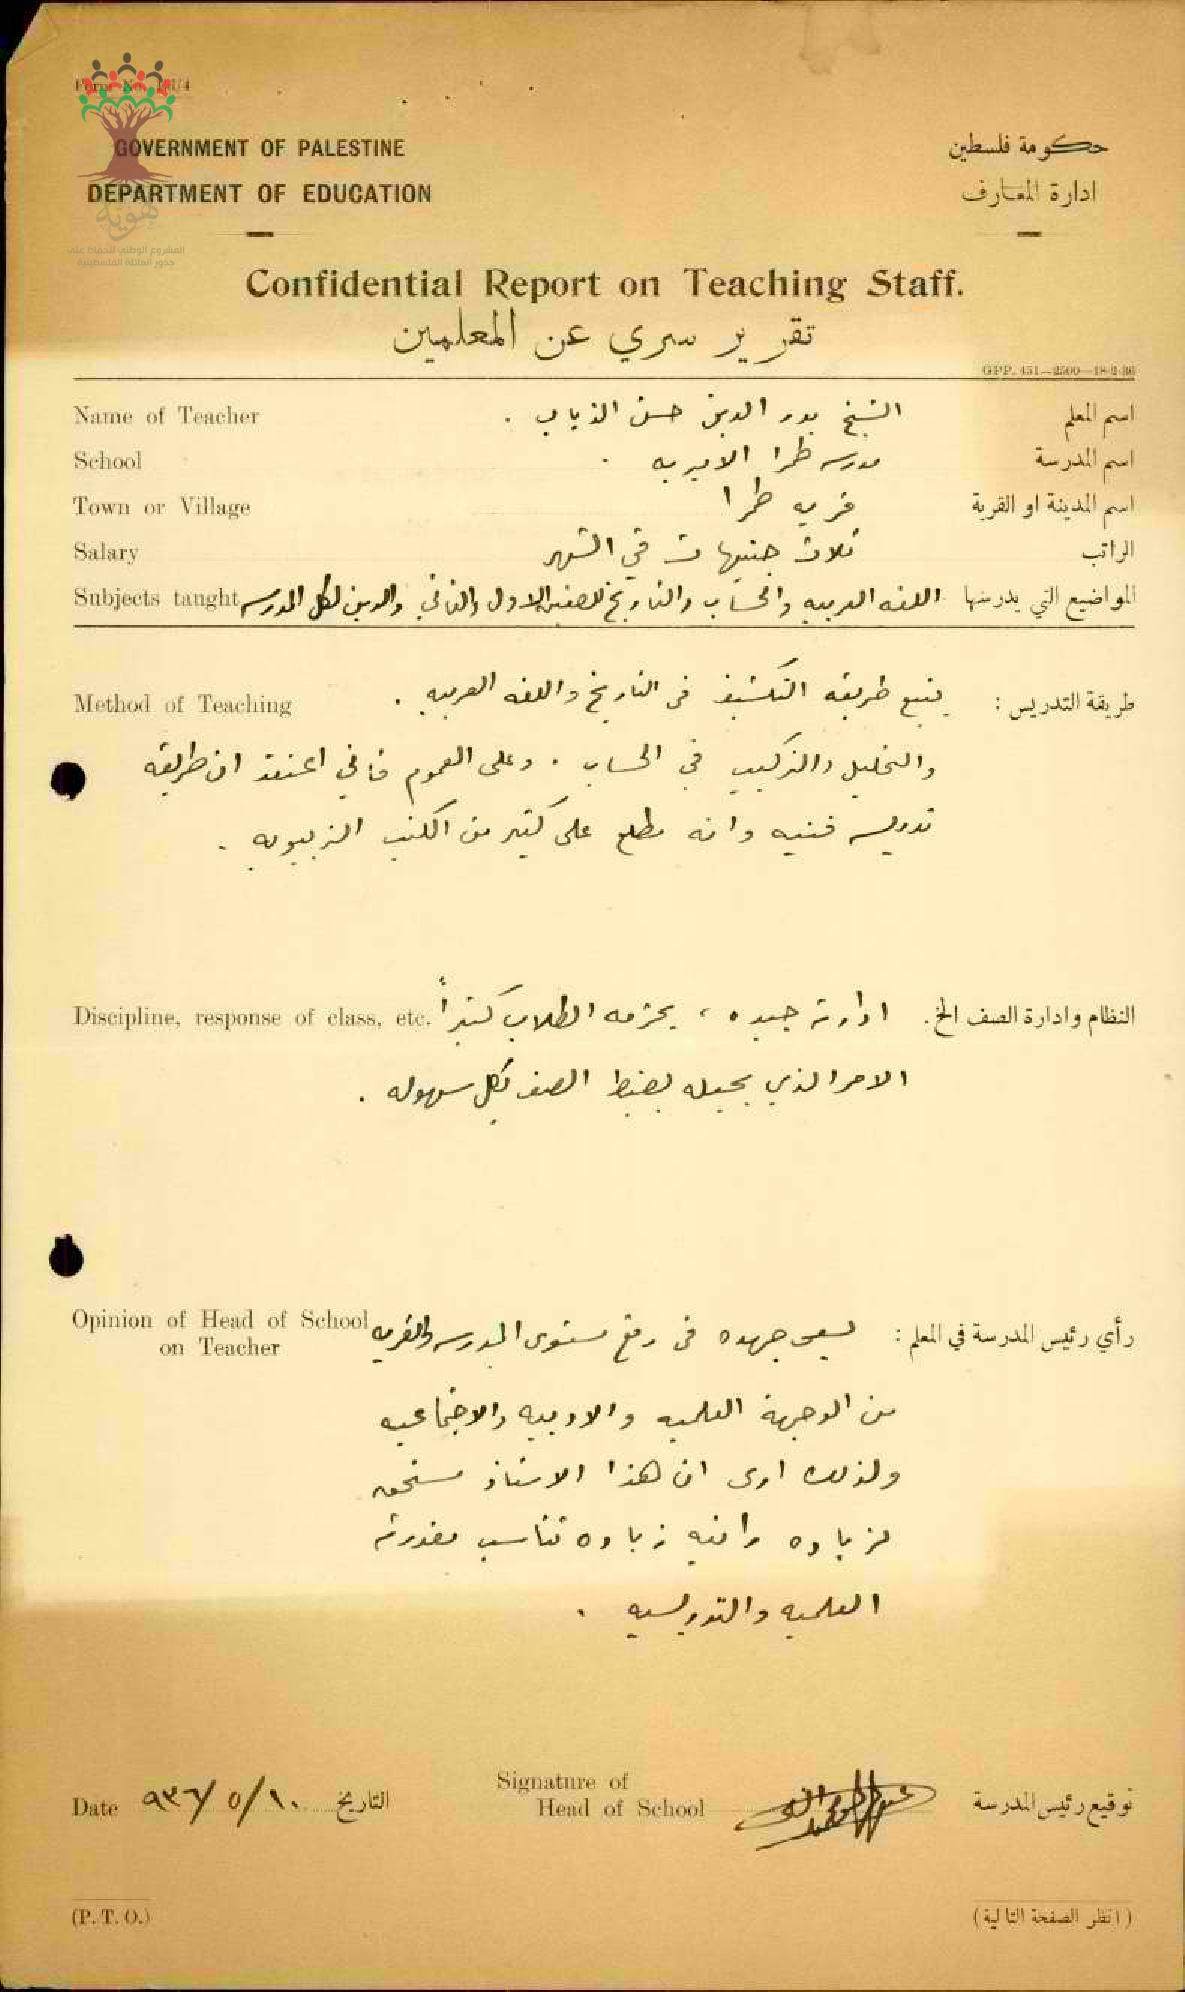 Form No. 1H/4
GOVERNMENT OF PALESTINE
حكومة فلسطين
DEPARTMENT OF EDUCATION
ادارة المعارف
هوية
المشروع الوطني للحفاظ على
جذور العائلة الفلسطينية
Confidential Report on Teaching Staff.
تقرير سري عن المعلمين
GPP. 451—2500—18-2-36
Name of Teacher الشيخ بدر الدين حسن الذياب . اسم المعلم
School مدرسه طمرا الاميريه . اسم المدرسة
Town or Village قريه طمرا اسم المدينة او القرية
Salary ثلاث جنيهات في الشهر الراتب
Subjects taught اللغه العربيه والحساب والتاريخ للصفين الاول والثاني والدين لكل المدرسه المواضيع التي يدرسها
Method of Teaching يتبع طريقه التكشيف في التاريخ واللغه العربيه . طريقة التدريس :
والتحليل والتركيب في الحساب . وعلى العموم فاني اعتقد ان طريقة
تدريسه فنيه وانه مطلع على كثير من الكتب التربيويه .
Discipline, response of class, etc. ادارته جيده ، يحترمه الطلاب كثيراً النظام وادارة الصف الخ.
الامر الذي يجعله يضبط الصف بكل سهوله .
Opinion of Head of School يسعى جهده في رفع مستوى المدرسه والقريه رأي رئيس المدرسة في المعلم :
on Teacher
من الوجهة العلميه والادبيه والاجتماعيه
ولذلك ارى ان هذا الاستاذ مستحق
لزياده راتبه زياده تناسب مقدرته
العلميه والتدريسيه .
Signature of
Date ٩٣٦/٥/١٠ التاريخ
Head of School توقيع رئيس المدرسة
(P. T. O.) (انظر الصفحة التالية)